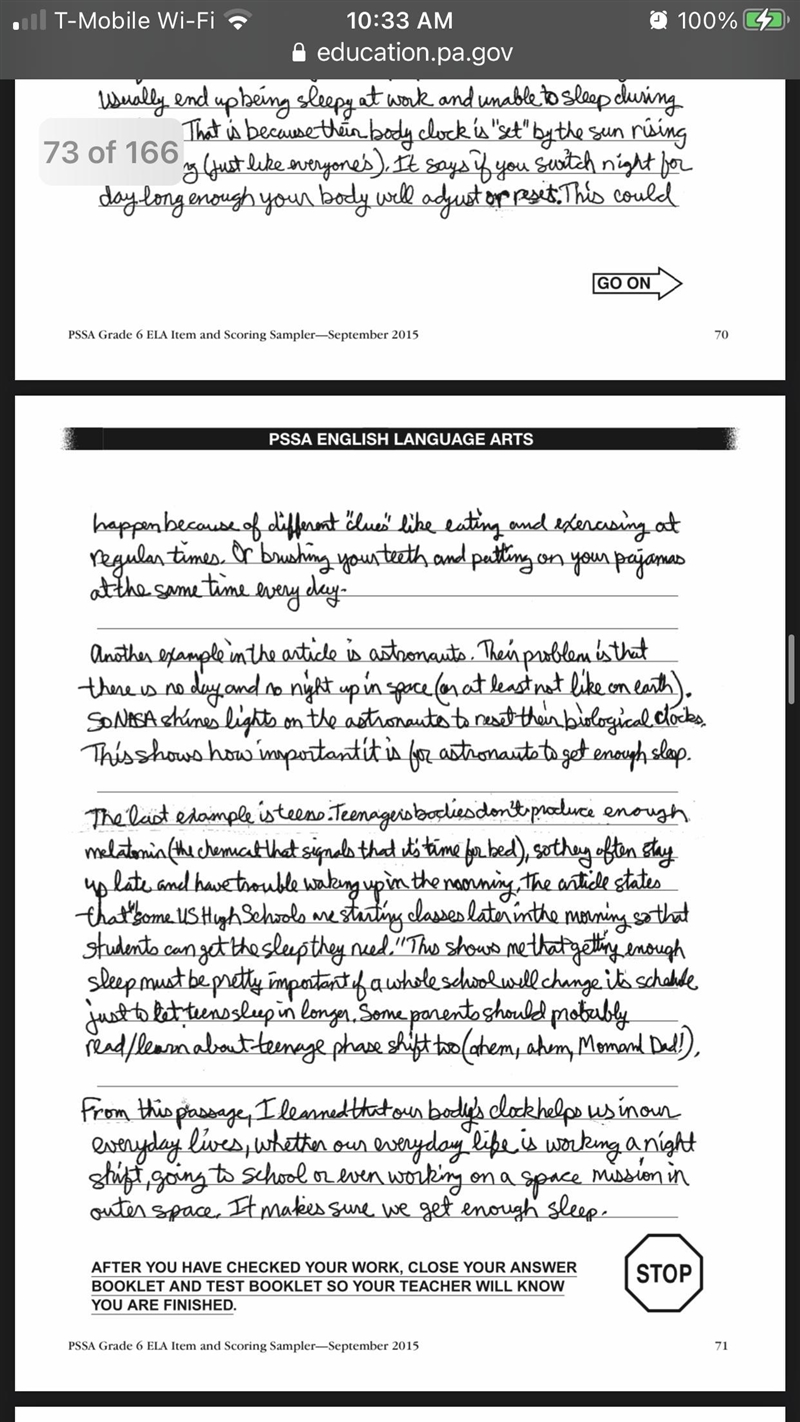 T-Mobile Wi-Fi 10:33 AM 100%
education.pa.gov
usually end up being sleepy at work and unable to sleep during
73 of 166
That is because their body clock is "set" by the sun rising
(just like everyone's). It says if you switch night for
day long enough your body will adjust or reset. This could
GO ON
PSSA Grade 6 ELA Item and Scoring Sampler—September 2015 70
PSSA ENGLISH LANGUAGE ARTS
happen because of different "clues" like eating and exercising at
regular times. Or brushing your teeth and putting on your pajamas
at the same time every day.
Another example in the article is astronauts. Their problem is that
there is no day and no night up in space (or at least not like on earth).
So NASA shines lights on the astronauts to reset their biological clocks.
This shows how important it is for astronauts to get enough sleep.
The last example is teens. Teenagers bodies don't produce enough
melatonin (the chemical that signals that it's time for bed), so they often stay
up late and have trouble waking up in the morning. The article states
that "some US High Schools are starting classes later in the morning so that
students can get the sleep they need." This shows me that getting enough
sleep must be pretty important if a whole school will change its schedule
just to let teens sleep in longer. Some parents should probably
read/learn about teenage phase shift too (ahem, ahem, Mom and Dad!).
From this passage, I learned that our body's clock helps us in our
everyday lives, whether our everyday life is working a night
shift, going to school or even working on a space mission in
outer space. It makes sure we get enough sleep.
AFTER YOU HAVE CHECKED YOUR WORK, CLOSE YOUR ANSWER
BOOKLET AND TEST BOOKLET SO YOUR TEACHER WILL KNOW
YOU ARE FINISHED.
STOP
PSSA Grade 6 ELA Item and Scoring Sampler—September 2015 71